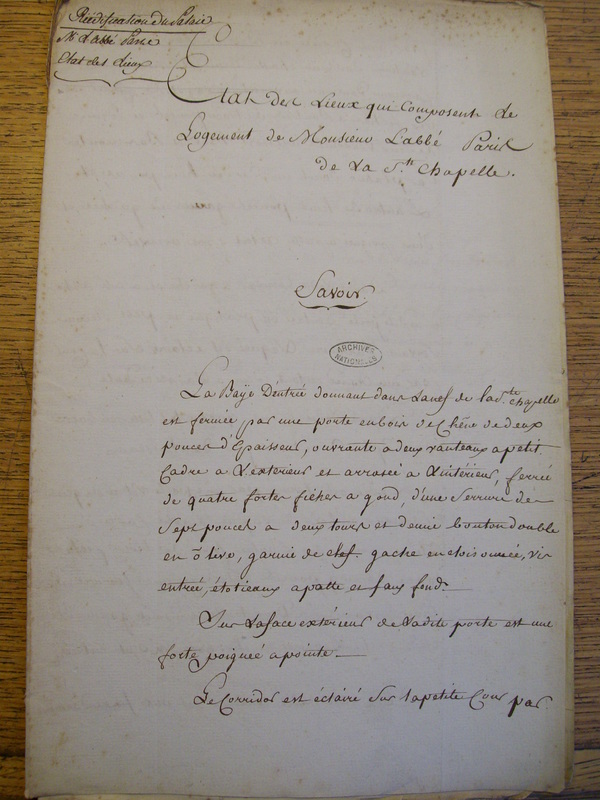 Réédification du Palais
Mr L'abbé Paris
Etat des Lieux
Etat des Lieux qui Composent Le
Logement de Monsieur L'abbé Paris
de La Ste Chapelle.
Savoir
ARCHIVES
NATIONALES
La Baÿe D'éntrée donnant dans Lanef de la Ste Chapelle
est fermée par une porte en bois de Chêne de deux
pouces d'Epaisseur, ouvrante a deux vanteaux a petit
Cadre a L'exterieur et arrasée a L'intérieur, ferrée
de quatre fortes fiches a gond, d'une Serrure de
Sept pouces a deux tours et demie bouton double
en olive, garnie de clef. gache encloisonnée, vis
entrée, étotieaux a patte et faux fond.
Sur Laface extérieur de Ladite porte est une
forte poignée a pointe.
Le Corridor est éclairé Sur lapetite Cour par